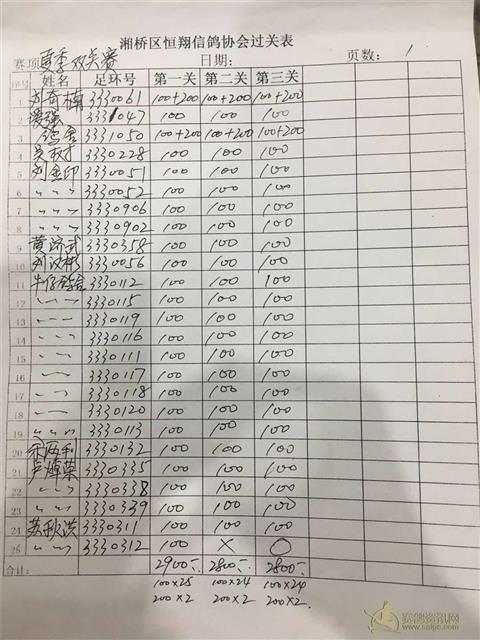 湘桥区恒翔信鸽协会过关表
赛项 夏季双关赛 日期: 页数: 1
序号 姓名 足环号 第一关 第二关 第三关
1 刘奇楠 3330061 100+200 100+200 100+200
2 3331047 100 100 100
3 3331050 100+200 100+200 100+200
4 3330228 100 100 100
5 刘金印 3330051 100 100 100
6 〃 〃 〃 3330052 100 100 100
7 〃 〃 〃 3330906 100 100 100
8 〃 〃 〃 3330902 100 100 100
9 黄济武 3330358 100 100 100
10 刘汉彬 3330056 100 100 100
11 3330112 100 100 100
12 〃 〃 3330115 100 100 100
13 〃 〃 3330119 100 100 100
14 〃 〃 3330116 100 100 100
15 〃 〃 3330111 100 100 100
16 〃 〃 3330117 100 100 100
17 〃 〃 3330118 100 100 100
18 〃 〃 3330120 100 100 100
19 〃 〃 〃 3330113 100 100 100
20 3330132 100 100 100
21 卢焯荣 3330335 100 100 100
22 〃 〃 3330338 100 100 100
23 〃 〃 3330339 100 100 100
24 苏秋洪 3330311 100 100 100
25 〃 〃 3330312 100 × ○
合计: 2900 2800 2800
100×25 100×24 100×24
200×2 200×2 200×2
赛鸽资讯网
www.saige.com